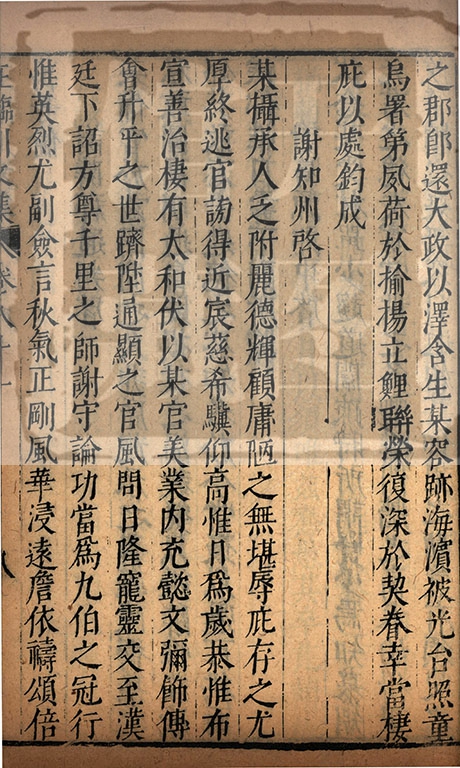 之郡即還大政以澤含生某容跡海濱被光台照童
烏署第夙荷於揄楊立鯉聯榮復深於契眷幸當棲
庇以處鈞成
謝知州啓
某攝承人乏附麗德輝顧庸陋之無堪辱庇存之尤
厚終逃官謗得近宸慈希驥仰高惟日爲歲恭惟布
宣善治棲有太和伏以某官美業内充懿文彌飾傳
會升平之世躋陞通顯之官風問日隆寵靈交至漢
廷下詔方尊千里之師謝守論功當爲九伯之冠行
惟英烈尤副僉言秋氣正剛風華浸遠詹依禱頌倍
王臨川文集 卷八十一 八